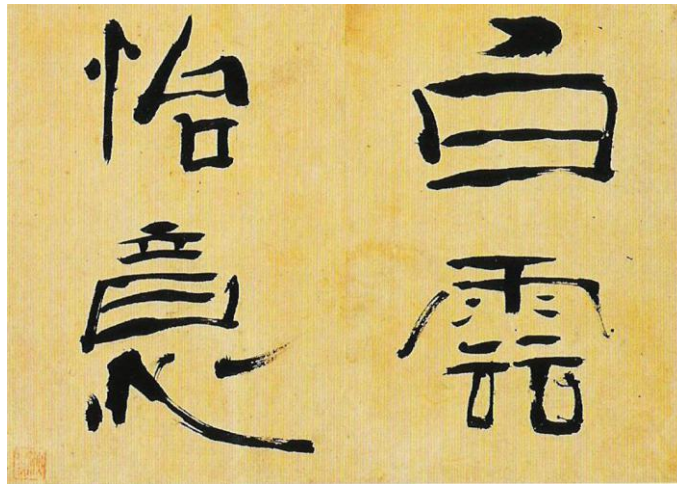 白雲
怡意